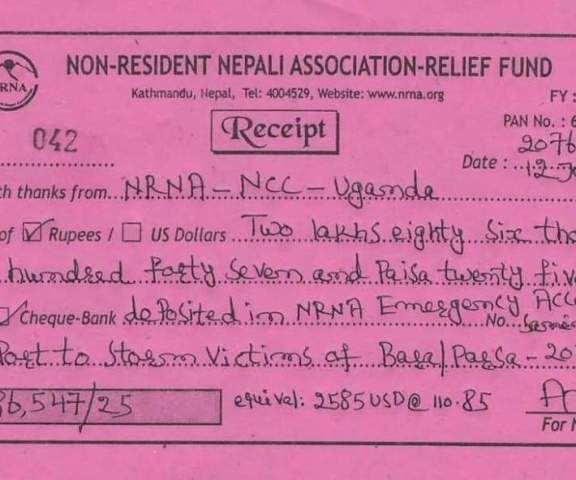 NRNA
NON-RESIDENT NEPALI ASSOCIATION-RELIEF FUND
Kathmandu, Nepal, Tel: 4004529, Website: www.nrna.org
FY :
PAN No. : 6
042
Receipt
2076
Date : 12
th thanks from NRNA-NCC-Uganda
of Rupees / US Dollars Two lakhs eighty six tho
hundred forty seven and Paisa twenty five
Cheque-Bank deposited in NRNA Emergency Acc
No.
Port to Storm Victims of Bara/Parsa - 20
86,547/25
equival: 2585 USD @ 110.85
For N